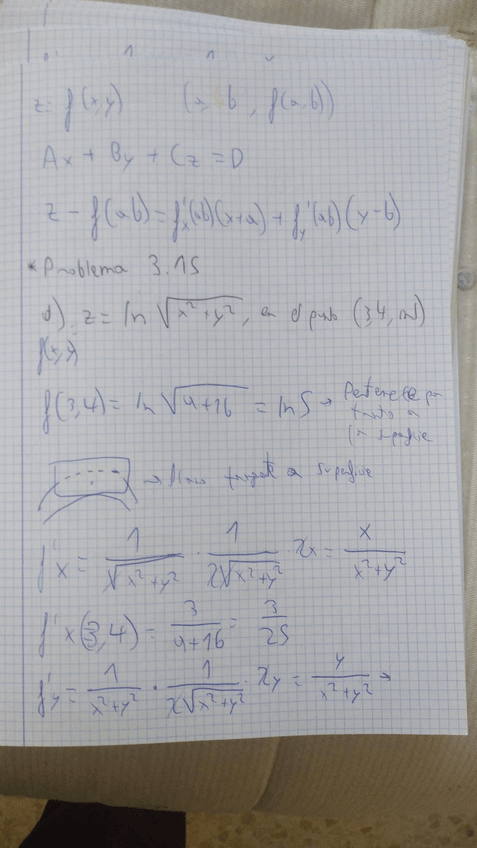 z = f(x,y) (a, b, f(a,b))
Ax + By + Cz = D
z - f(ab) = f'x(ab)(x+a) + f'y(ab)(y-b)
* Problema 3.15
d) z = ln √(x²+y²), en el punto (3,4, ln5)
f(x,y)
f(3,4) = ln √(9+16) = ln 5 → Pertenece por
tanto a
la superficie
→ Plano tangente a superficie
f'x = 1/√(x²+y²) · 1/(2√(x²+y²)) · 2x = x/(x²+y²)
f'x(3,4) = 3/(9+16) = 3/25
f'y = 1/(x²+y²) · 1/(2√(x²+y²)) · 2y = y/(x²+y²) →